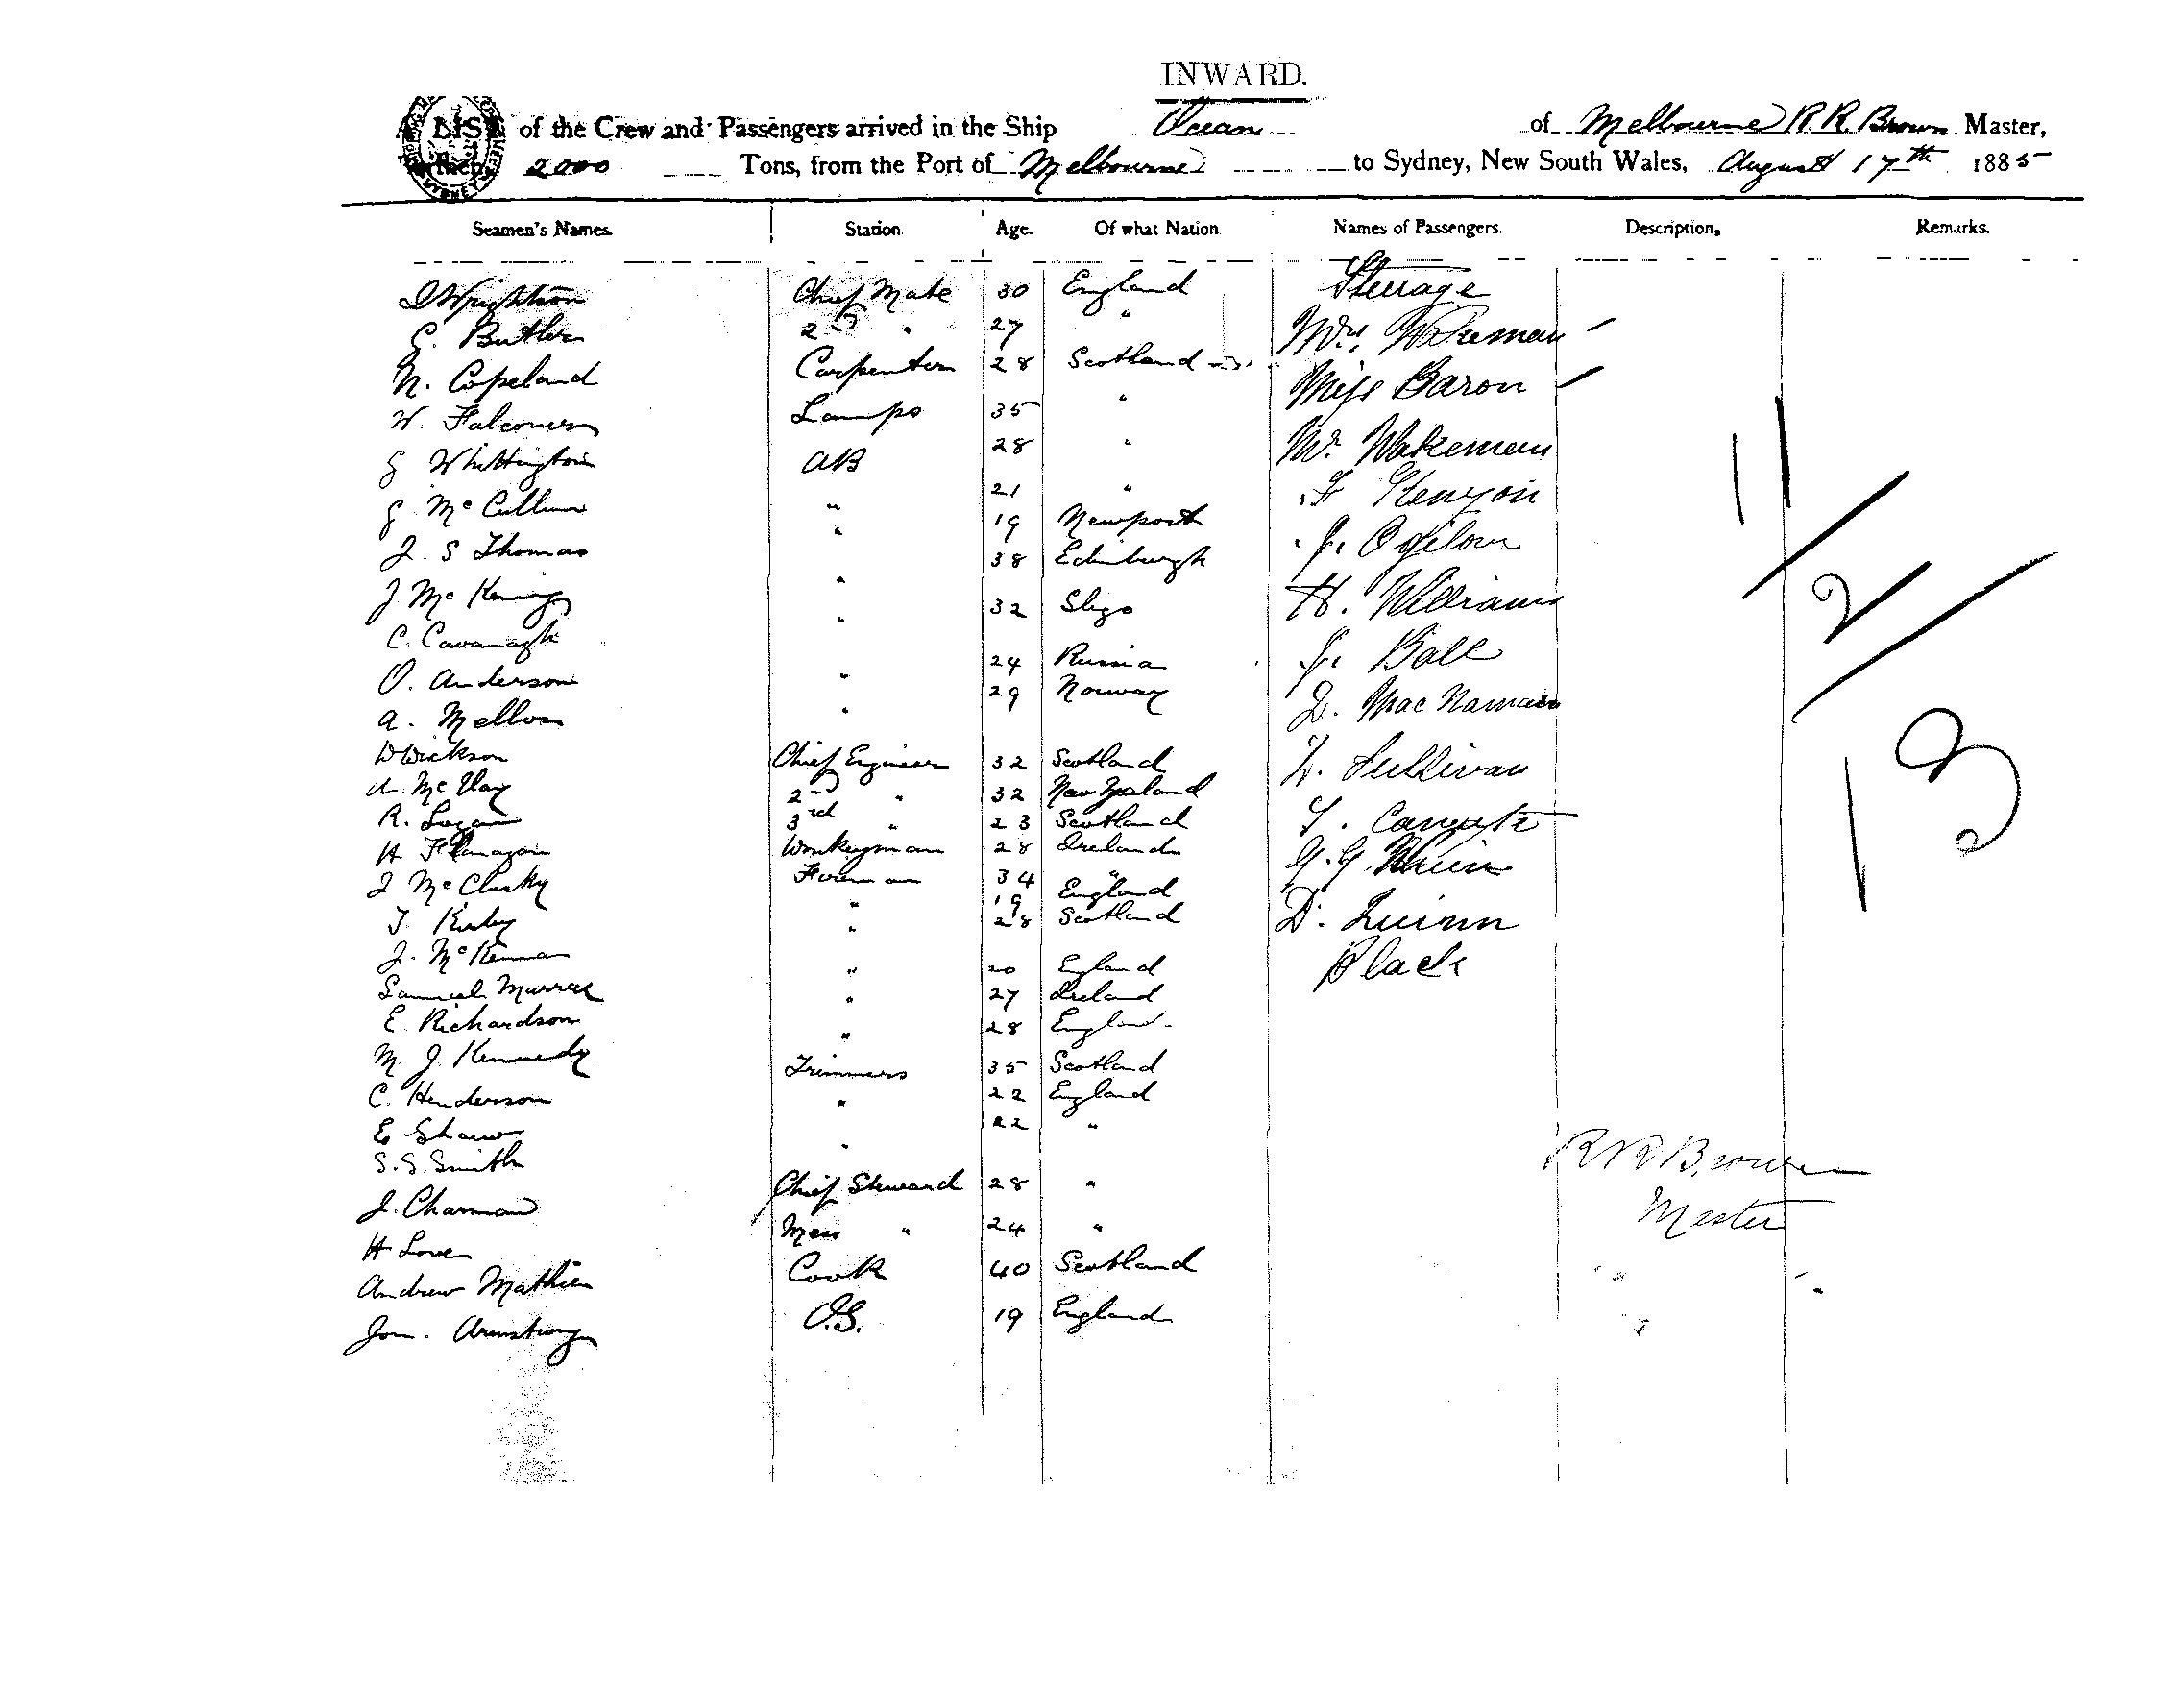 INWARD.
LIST of the Crew and Passengers arrived in the Ship Ocean of Melbourne R. R. Brown Master,
2000 Tons, from the Port of Melbourne to Sydney, New South Wales, August 17th 1885
Seamen's Names. Station. Age. Of what Nation. Names of Passengers. Description. Remarks.
Chief Mate 30 England Steerage
G. Butler 2nd " 27 " Mrs.
N. Copeland Carpenter 28 Scotland Miss Baron
W. Falconer Lamps 35 " Mr. Wakeman
G Whittington AB 28 " F Kenyon
G McCullum " 21 " J. Ogilvie
J. S Thomas " 19 Newport H. Williams
J. Mc " 38 Edinburgh J. Ball
C. Cavanagh " 32 Sligo D. MacNamara
O. Anderson " 24 Russia Sullivan
A. Mellon " 29 Norway
W Dickson Chief Engineer 32 Scotland
A. McVay 2nd " 32 New Zealand
R. Logan 3rd " 23 Scotland D. Quinn
H Flanagan 28 Ireland Black
J McClusky Fireman 34 "
T. Kirby " 19 England
J. McKenna " 28 Scotland
Samuel Murray " 20 England
E. Richardson " 27 Ireland
M. J. Kennedy " 28 England
C. Henderson Trimmers 35 Scotland
E Shaw " 22 England
S. G Smith " 22 "
J. Charman Chief Steward 28 "
H Love Mess " 24 "
Andrew Mathieu Cook 40 Scotland
Jon. Armstrong O.S. 19 England
11
2
13
R R Brown
Master